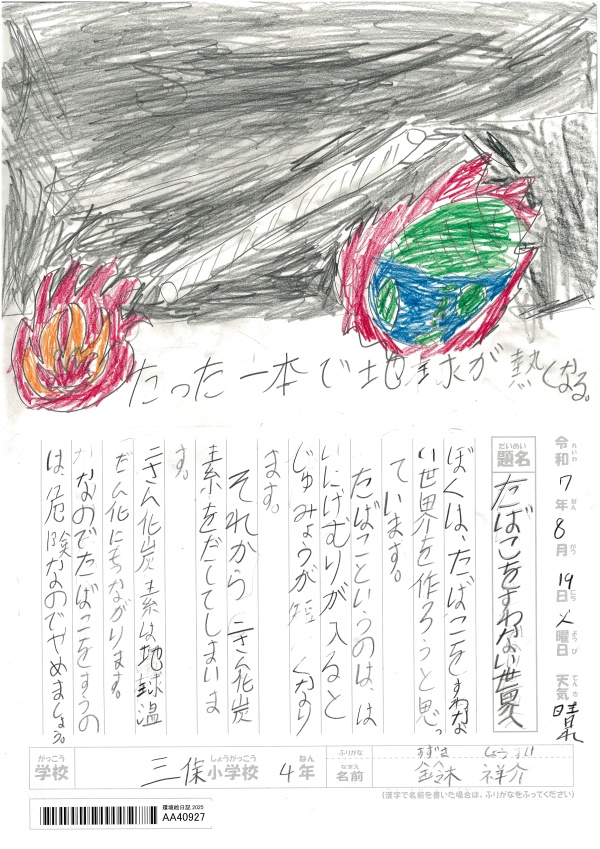 たった一本で地球が熱くなる。
令和7年8月19日火曜日 天気 晴れ
れいわ ねん がつ にち ようび てんき
だいめい
題名 たばこをすわない世界
ぼくは、たばこをすわな
い世界を作ろうと思っ
ています。
たばこというのは、は
いにけむりが入ると
じゅみょうが短くなり
ます。
それから二さん化炭
素をだしてしまいま
す。
二さん化炭素は地球温
だん化にもつながります。
なのでたばこをすうの
は危険なのでやめましょう。
がっこう しょうがっこう ねん
学校 三保小学校 4年
ふりがな すずき しょうすけ
なまえ
名前 鈴木 祥介
(漢字で名前を書いた場合は、ふりがなをふってください)
環境絵日記 2025
AA40927